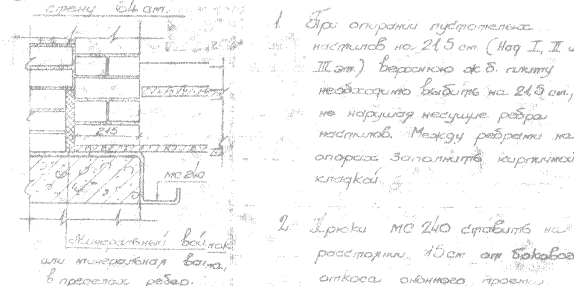 стену 64 см.
215
МС 240
Минеральный войлок
или минеральная вата,
в пределах ребер.
1. При опирании пустотелых
настилов на 21.5 см (Над I, II и
III эт.) верхнюю ж.б. плиту
необходимо выбить на 21.5 см,
не нарушая несущие ребра
настилов. Между ребрами на
опорах заполнить кирпичной
кладкой.
2. Крюки МС 240 ставить на
расстоянии 15 см от бокового
откоса оконного проема